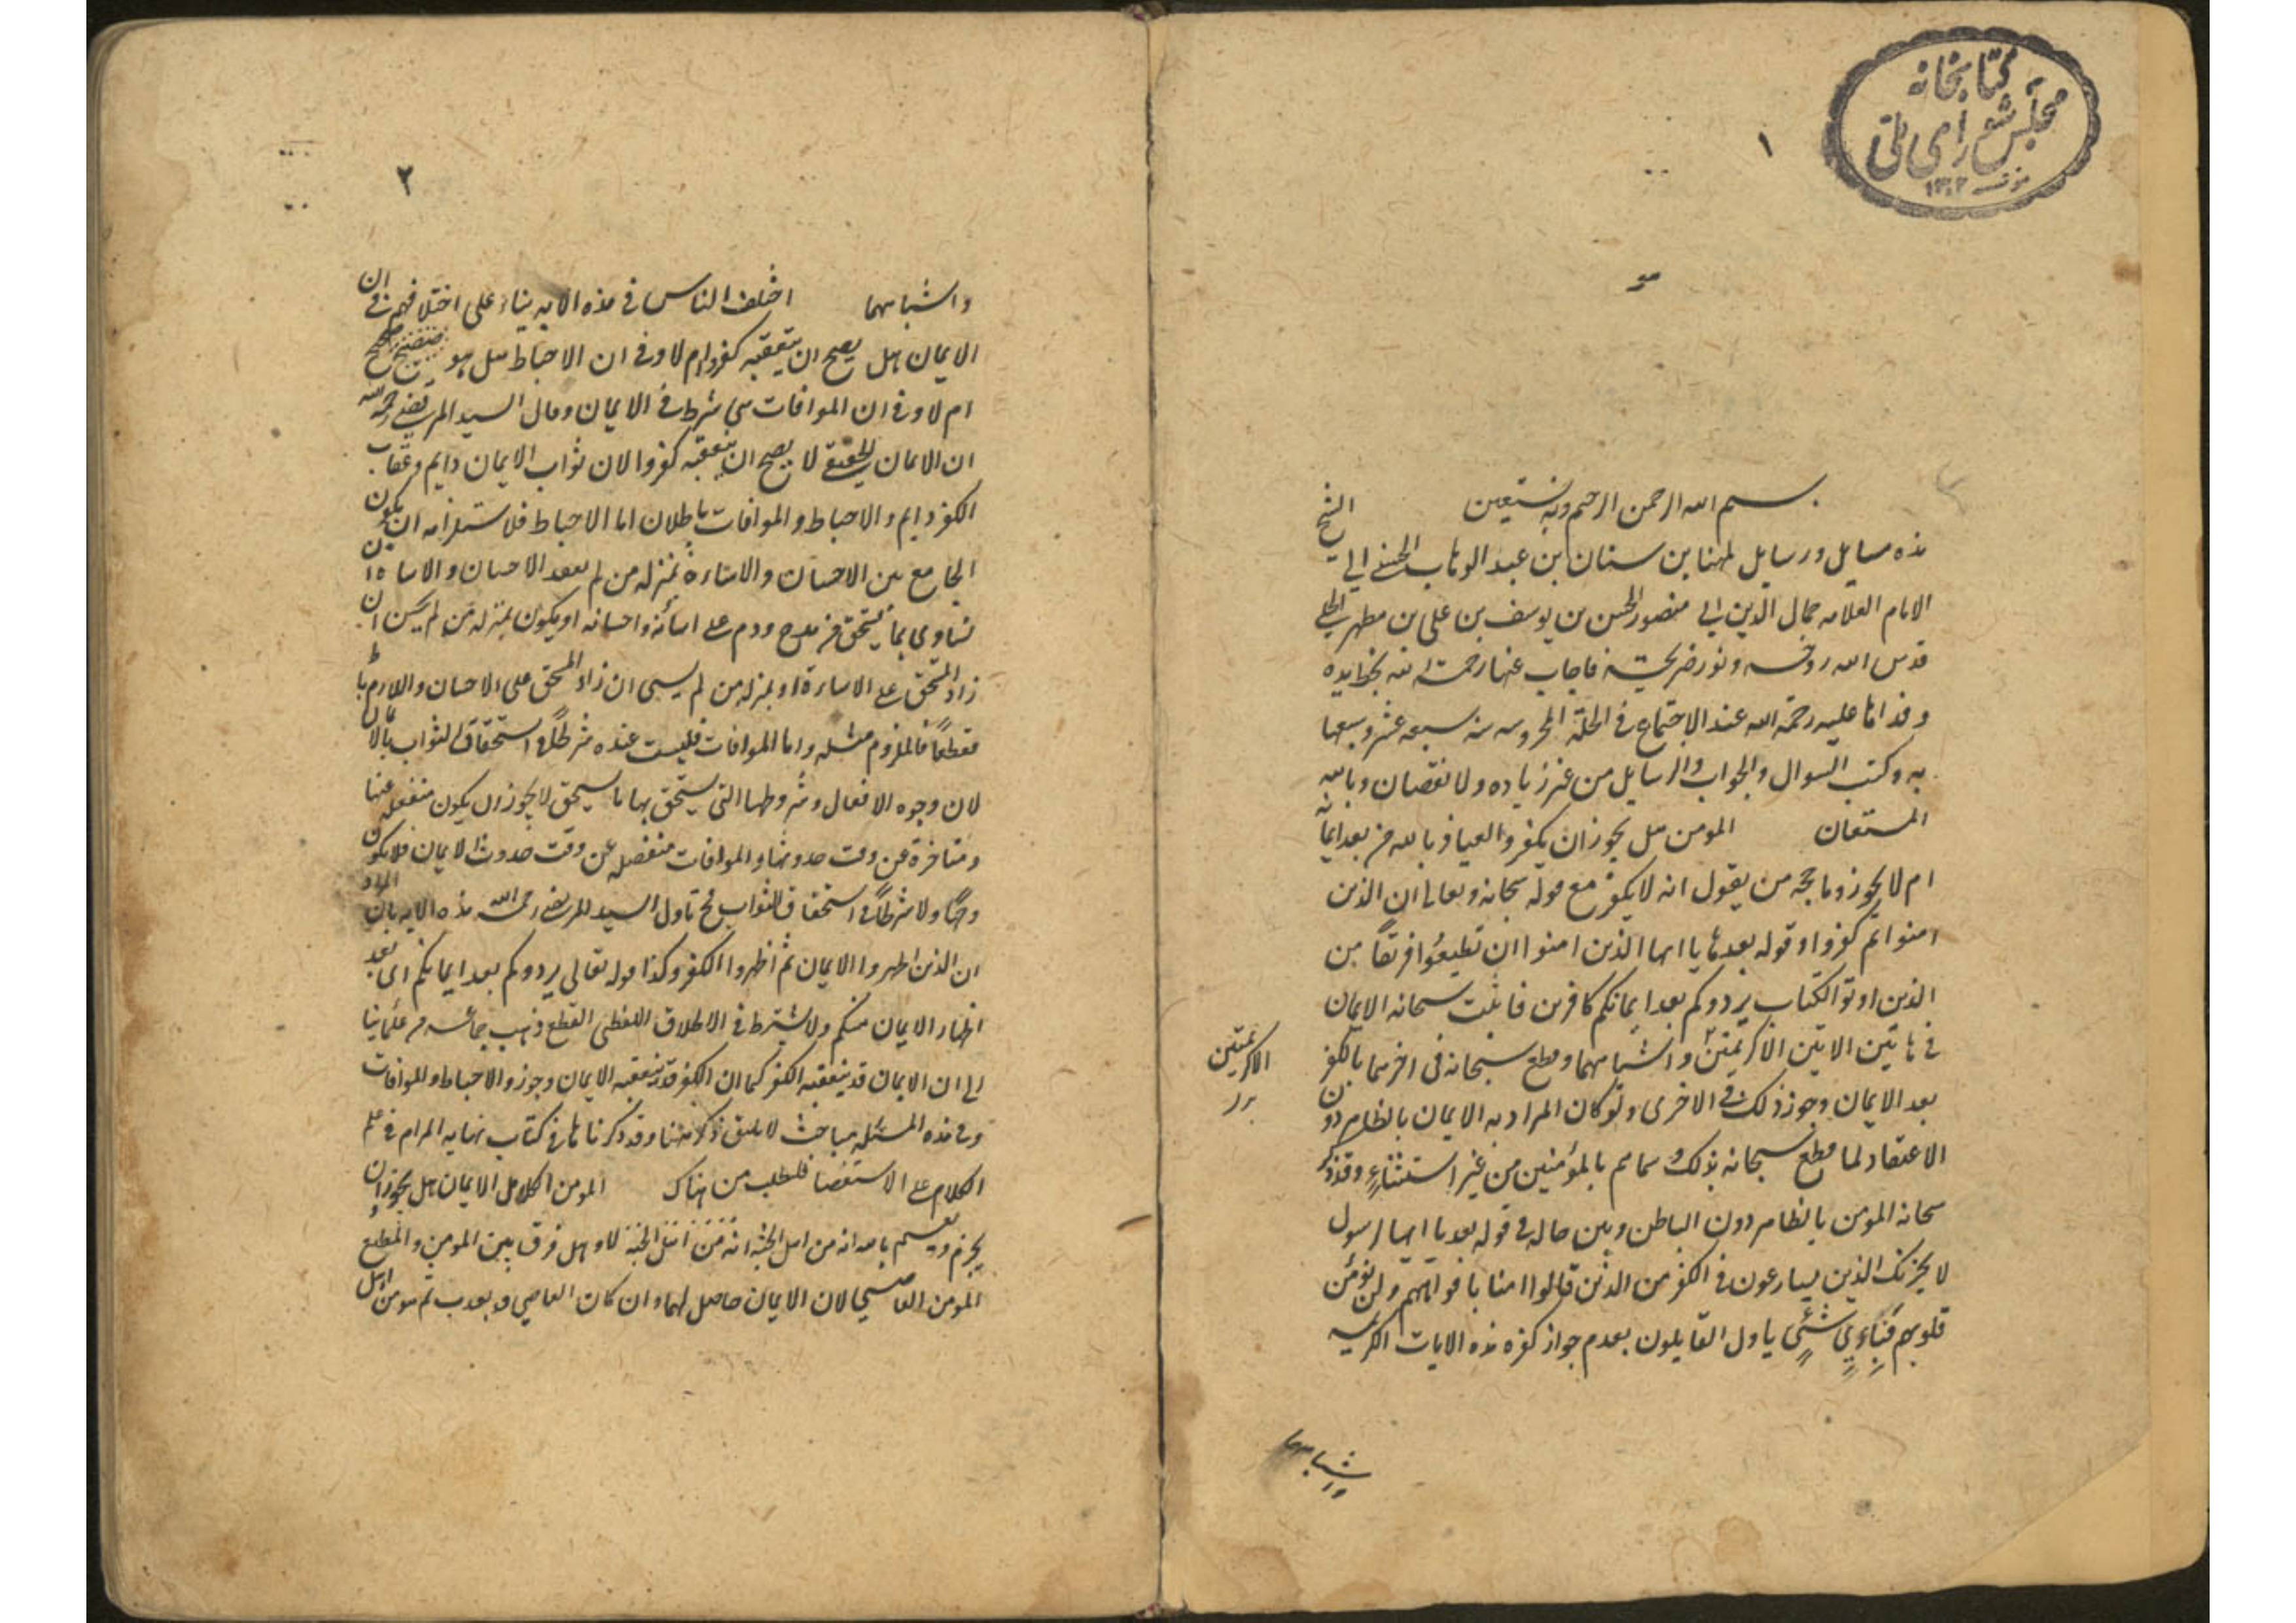 كتابخانه
مجلس شوراى ملى
١٣٠٢
١
بسم الله الرحمن الرحيم وبه نستعين
هذه مسايل ورسايل لمهنا بن سنان بن عبد الوهاب الحسيني الي الشيخ
الامام العلامه جمال الدين ابي منصور الحسن بن يوسف بن علي بن مطهر الحلي
قدس الله روحه ونور ضريحه فاجاب عنها رحمه الله بخط يده
وقد اتا عليه رحمة الله عند الاجتماع في الحلة المحروسه سنه سبعه عشر وسبعما
يه وكتب السوال والجواب والرسايل من غير زياده ولا نقصان وبالله
المستعان المومن هل يجوز ان يكفر والعياذ بالله من بعد ايمانه
ام لا يجوز وما حجه من يقول انه لا يكفر مع قوله سبحانه وتعالى ان الذين
امنوا ثم كفروا وقوله بعدها يا ايها الذين امنوا ان تطيعوا فريقاً من
الذين اوتو الكتاب يردوكم بعد ايمانكم كافرين فاثبت سبحانه الايمان
في هاتين الايتين الاكريمتين واشباههما وقطع سبحانه في اخرهما بالكفر
الاكريمتين
بعد الايمان وجوز ذلك في الاخرى ولو كان المراد به الايمان بالظاهر دون
الاعتقاد لما قطع سبحانه بذلك و سماهم بالمؤمنين من غير استثناءٍ وقد ذكر
سبحانه المومن بالظاهر دون الباطن وبين حاله في قوله بعد يا ايها الرسول
لا يحزنك الذين يسارعون في الكفر من الذين قالوا امنا بافواههم ولم تؤمن
قلوبهم فبايّ شئٍ ياول القايلون بعدم جواز كفره هذه الايات الكريمه
واشباههما
٢
واشباههما اختلف الناس في هذه الايه بناء على اختلافهم في ان
الايمان هل يصح ان يتعقبه كفر ام لا وفي ان الاحباط هل هو صحيح
ام لا وفي ان الموافات هي شرط في الايمان وقال السيد المرتضى رحمه الله
ان الايمان الحقيقي لا يصح ان يتعقبه كفر والا لان ثواب الايمان دايم وعقاب
الكفر دايم والاحباط والموافات باطلان اما الاحباط فلاستلزامه ان يكون
الجامع بين الاحسان والاساءة بمنزله من لم يفعل الاحسان والاساءة ان
تساوى بما يستحق من مدح وذم على اسائته واحسانه او يكون بمنزله من لم يحسن ان
زاد المستحق على الاساءة او بمنزله من لم يسى ان زاد المستحق على الاحسان واللازم باطل
قطعاً فالملزوم مثله واما الموافات فليست عنده شرطاً في استحقاق الثواب بالايمان
لان وجوه الافعال وشروطها التي يستحق بها ما يستحق لا يجوز ان يكون منفصله عنها
ومتاخرة عن وقت حدوثها والموافات منفصله عن وقت حدوث الايمان فلا يكون
وجهاً ولا شرطاً في استحقاق الثواب فح تاول السيد المرتضى رحمه الله هذه الايه بان المراد
ان الذين اظهروا الايمان ثم اظهروا الكفر وكذا قوله تعالى يردوكم بعد ايمانكم اى بعد
اظهار الايمان منكم ولا يشترط في الاطلاق اللفظى القطع وذهب جماعه من علمائنا
الى ان الايمان قد يتعقبه الكفر كما ان الكفر قد يتعقبه الايمان وجوزوا الاحباط والموافات
وفي هذه المسئله مباحث لا يليق ذكرها هنا وقد ذكرناها في كتاب نهايه المرام في علم
الكلام على الاستقصا فليطلب من هناك المومن الكامل الايمان هل يجوز ان
يجزم ويقسم بالله انه من اهل الجنة لا وهل فرق بين المومن المطيع و
المومن العاصي لان الايمان حاصل لهما وان كان العاصي